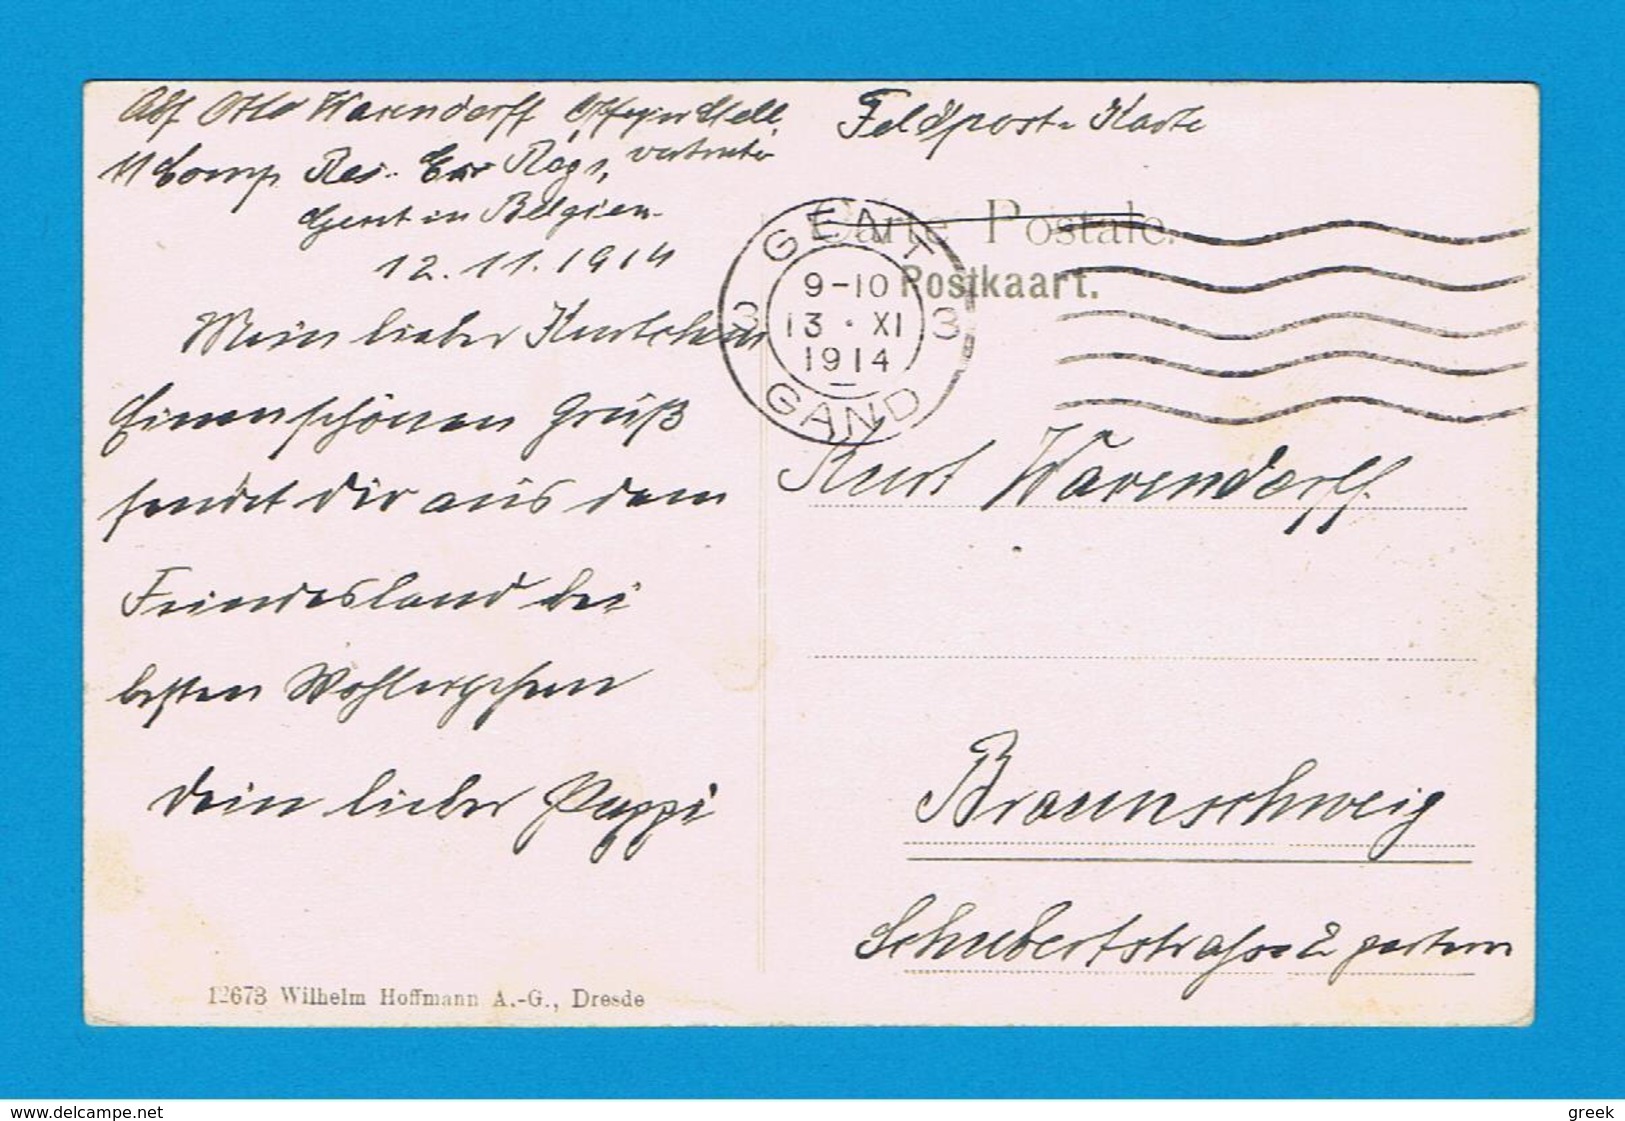 Abs Otto Warendorff Offizier Stell.
11 Comp Res. Ers Regt, vertreter
Gent in Belgien
12.11.1914
Mein lieber Kurtchen
Einen schönen Gruß
sendet dir aus dem
Feindesland bei
besten Wohlergehen
dein lieber Pappi
12673 Wilhelm Hoffmann A.-G., Dresde
Feldpost-Karte
Carte Postale.
Postkaart.
GENT
9-10
3 13 · XI 3
1914
GAND
Kurt Warendorff.
Braunschweig
Schubertstrasse 2 partern
www.delcampe.net
greek